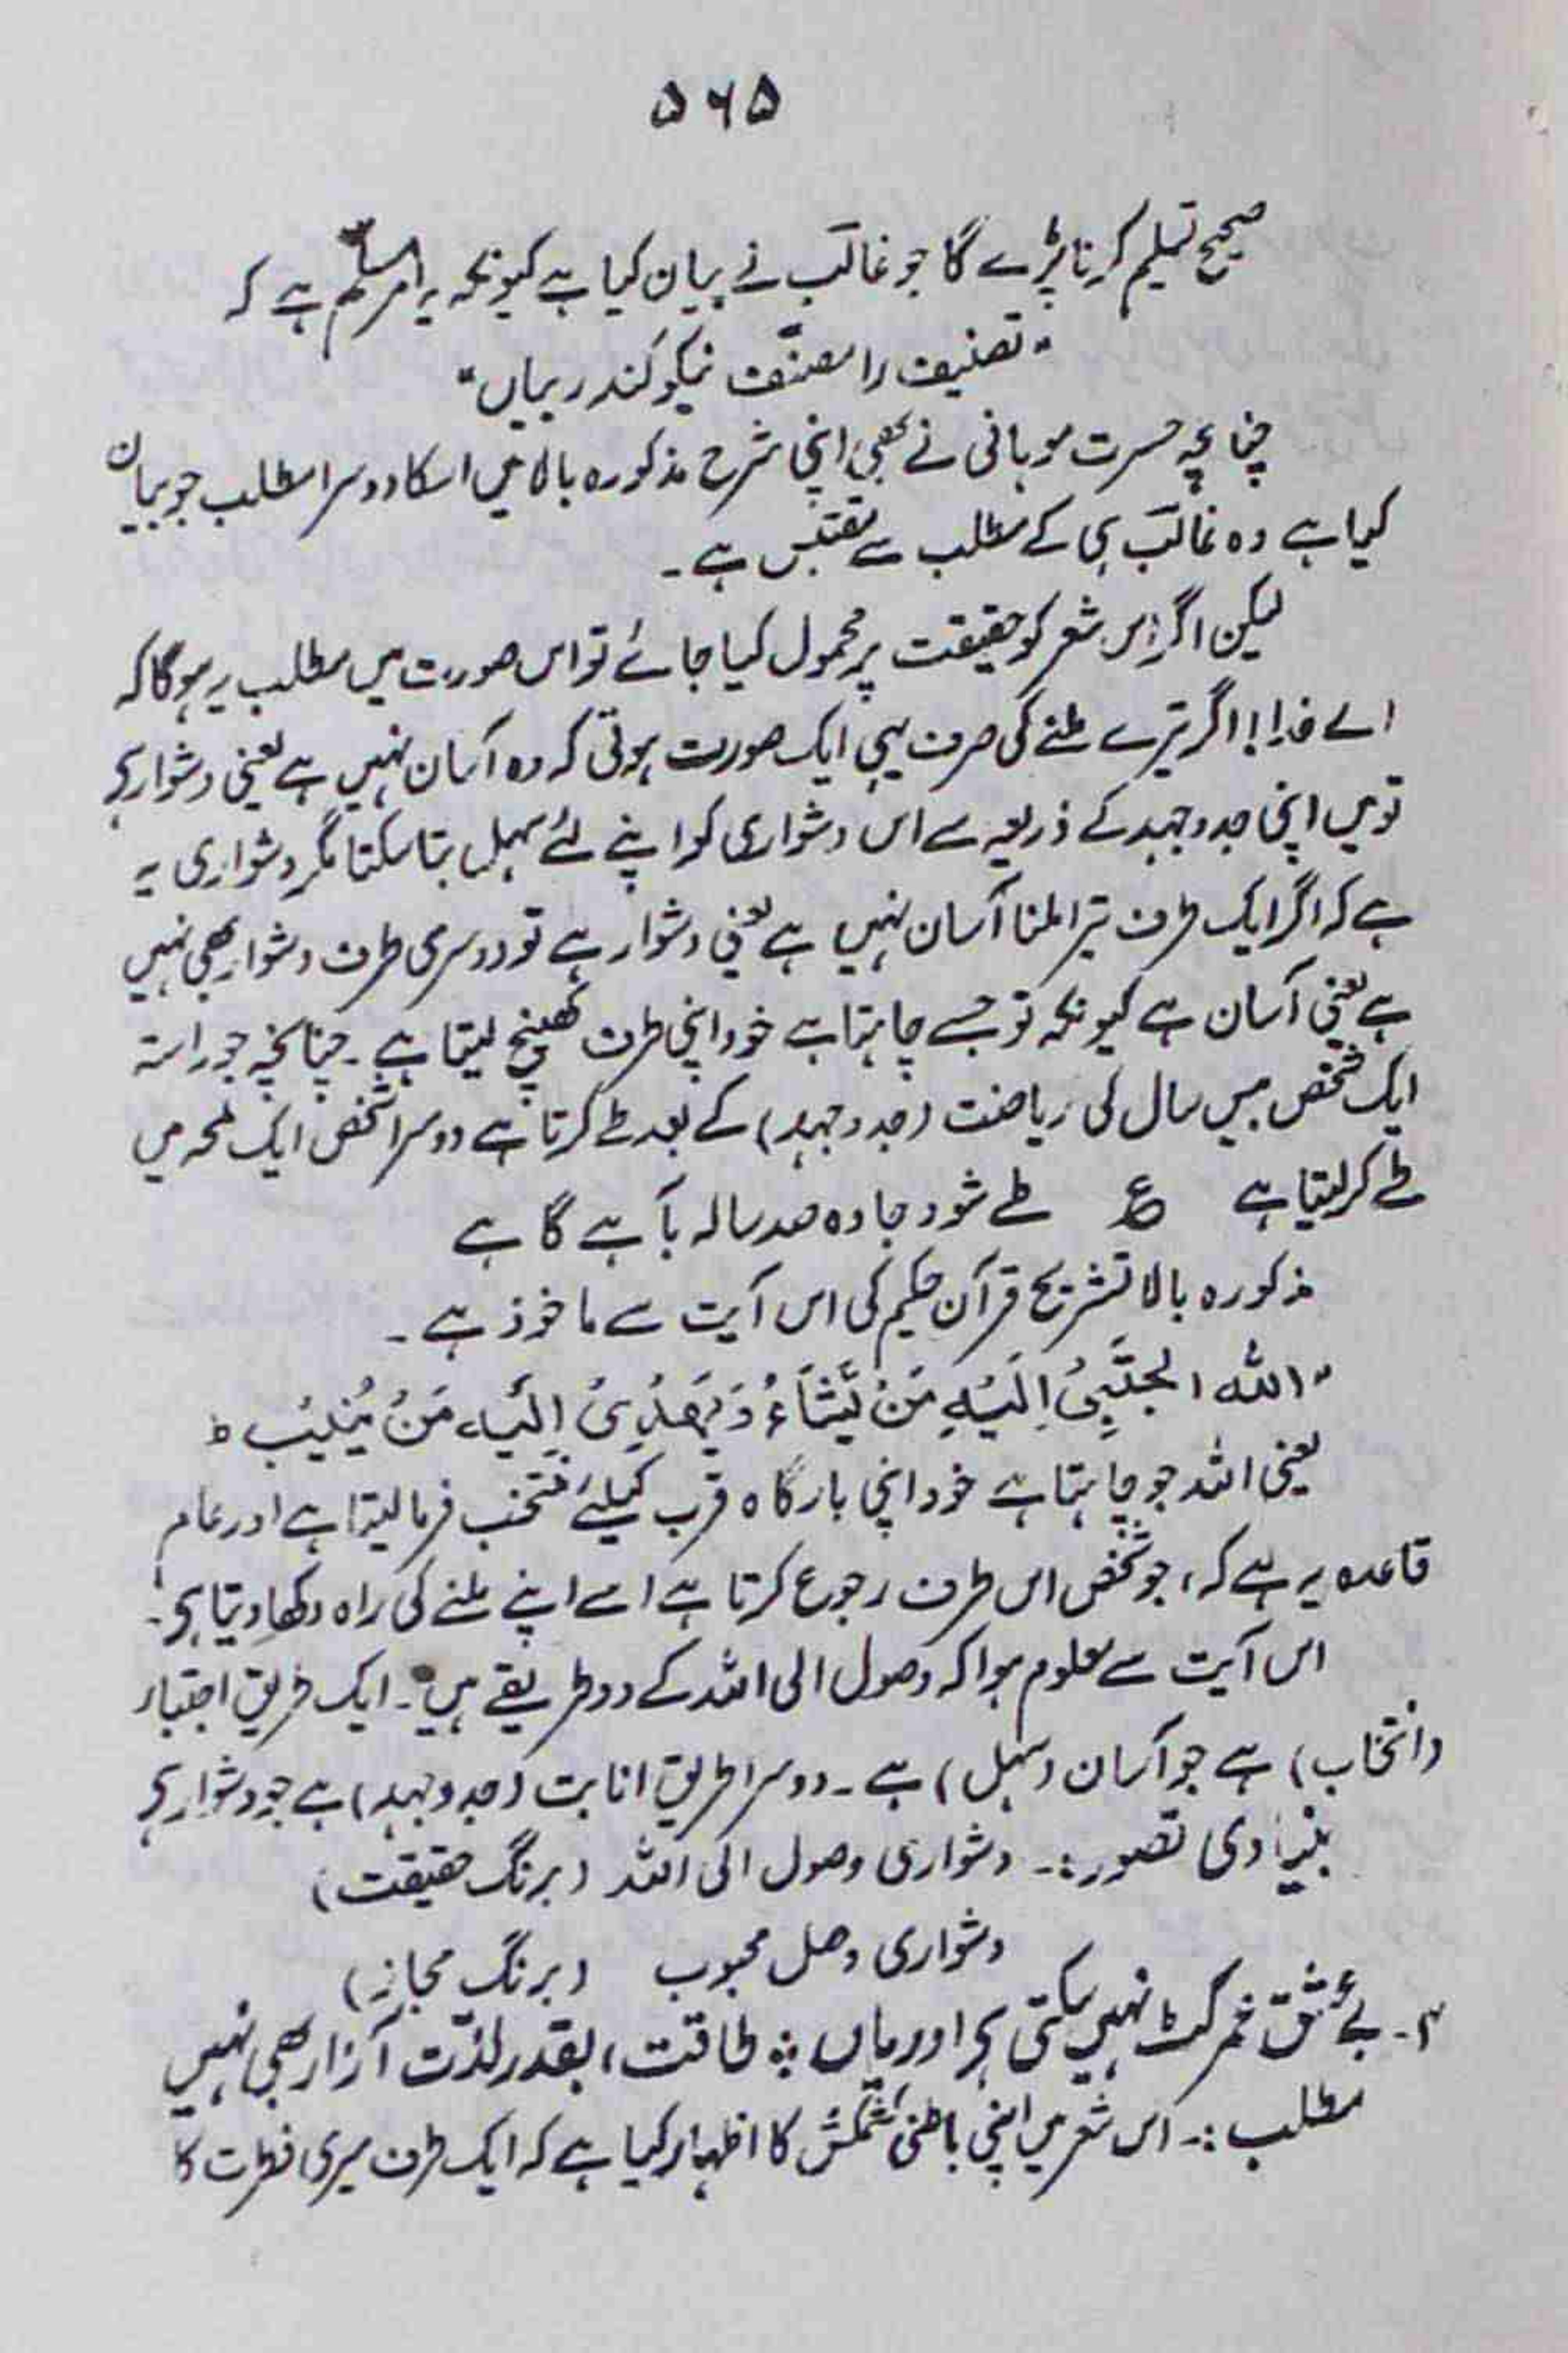 ۵۶۵
صحیح تسلیم کرنا پڑے گا جو غالب نے بیان کیا ہے کیونکہ یہ امر مسلّم ہے کہ
"تصنیف را مصنّف نیکو کند بیاں"
چنانچہ حسرت موہانی نے بھی اپنی شرح مذکورہ بالا میں اسکا دوسرا مطلب جو بیان
کیا ہے وہ غالب ہی کے مطلب سے مقتبس ہے۔
لیکن اگر اس شعر کو حقیقت پر محمول کیا جائے تو اس صورت میں مطلب یہ ہوگا کہ
اے خدا! اگر تیرے ملنے کی صرف یہی ایک صورت ہوتی کہ وہ آسان نہیں ہے یعنی دشوار ہے
تو میں اپنی جدوجہد کے ذریعہ سے اس دشواری کو اپنے لئے سہل بنا سکتا مگر دشواری یہ
ہے کہ اگر ایک طرف تیرا ملنا آسان نہیں ہے یعنی دشوار ہے تو دوسری طرف دشوار بھی نہیں
ہے یعنی آسان ہے کیونکہ تو جسے چاہتا ہے خود اپنی طرف کھینچ لیتا ہے۔ چنانچہ جو راستہ
ایک شخص بیس سال کی ریاضت (جدوجہد) کے بعد طے کرتا ہے دوسرا شخص ایک لمحہ میں
طے کر لیتا ہے ع طے شود جادہ صد سالہ بآہے گاہے
مذکورہ بالا تشریح قرآن حکیم کی اس آیت سے ماخوذ ہے۔
"اللہ یجتَبِیُ اِلَیُہِ مَنُ یَّشَآءُ وَ یَھُدِیُ اِلَیُہِ مَنُ یُّنِیُب ط
یعنی اللہ جو چاہتا ہے خود اپنی بارگاہ قرب کیلئے منتخب فرما لیتا ہے اور عام
قاعدہ یہ ہے کہ، جو شخص اس طرف رجوع کرتا ہے اسے اپنے ملنے کی راہ دکھا دیتا ہے۔
اس آیت سے معلوم ہوا کہ وصول الی اللہ کے دو طریقے ہیں۔ ایک طریق اجتباء
(انتخاب) ہے جو آسان (سہل) ہے۔ دوسرا طریق انابت (جدوجہد) ہے جو دشوار ہے
بنیادی تصور:۔ دشواری وصول الی اللہ (برنگ حقیقت)
دشواری وصل محبوب (برنگ مجاز)
۲۔ بے عشق عمر کٹ نہیں سکتی ہے اور یاں ؞ طاقت، بقدر لذّت آزار بھی نہیں
مطلب:۔ اس شعر میں اپنی باطنی کشمکش کا اظہار کیا ہے کہ ایک طرف میری فطرت کا